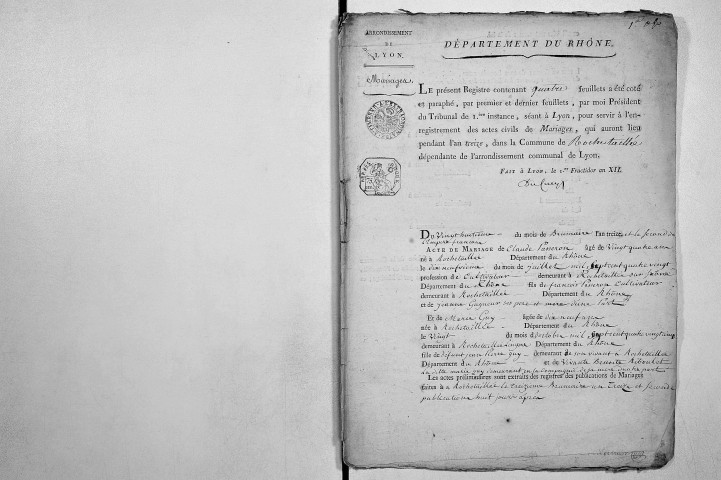 ARRONDISSEMENT
DE
LYON.
Mariages
DÉPARTEMENT DU RHÔNE.
LE présent Registre contenant quatre feuillets a été coté
et paraphé, par premier et dernier feuillets, par moi Président
du Tribunal de 1.ère instance, séant à Lyon, pour servir à l'en-
registrement des actes civils de Mariages, qui auront lieu
pendant l'an treize, dans la Commune de Rochetaillée
dépendante de l'arrondissement communal de Lyon.
FAIT à Lyon, le 1.er Fructidor an XII.
DU Vingt huitieme du mois de Brumaire l'an treize et le second de
l'Empire francaise
ACTE DE MARIAGE de Claude âgé de Vingt quatre ans
né à Rochetaillée Département du Rhône
le dix neuvieme du mois de juillet mil sept cent quatre vingt
profession de Cultivateur demeurant à Rochetaillée sur Saône
Département du Rhône fils de francois Cultivateur
demeurant à Rochetaillée Département du Rhône
et de jeanne ses pere et mere d'une Part
Et de Marie Guy âgée de dix neuf ans
née à Rochetaillée Département du Rhône
le Vingt du mois d'octobre mil sept cent quatre vingt cinq
demeurant à Rochetaillée Département du Rhône
fille de défunt jean pierre Guy demeurant de son vivant à Rochetaillée
Département du Rhône et de Benoite
la dite marie guy demeurant en la compagnie de sa mere d'autre part
Les actes préliminaires sont extraits des registres des publications de Mariages
faites à Rochetaillée le treizieme Brumaire an Treize et seconde
publication huit jours après